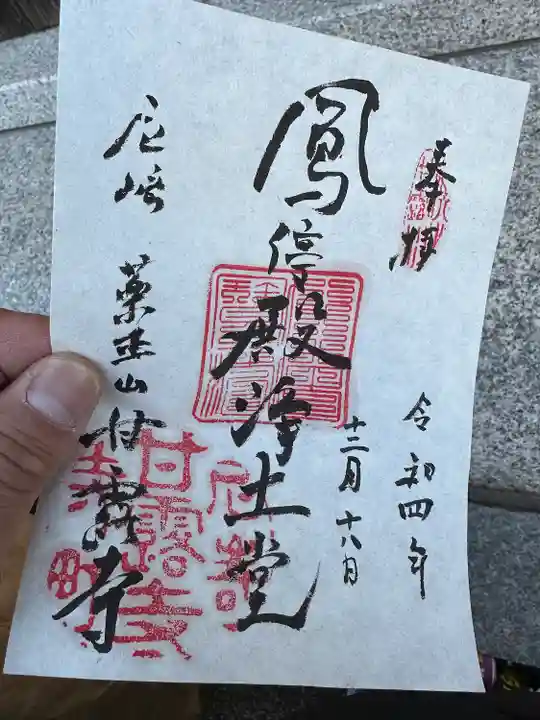 奉拝
令和四年
十二月十八日
鳳停殿浄土堂
尼崎 薬王山甘露寺
甘露寺